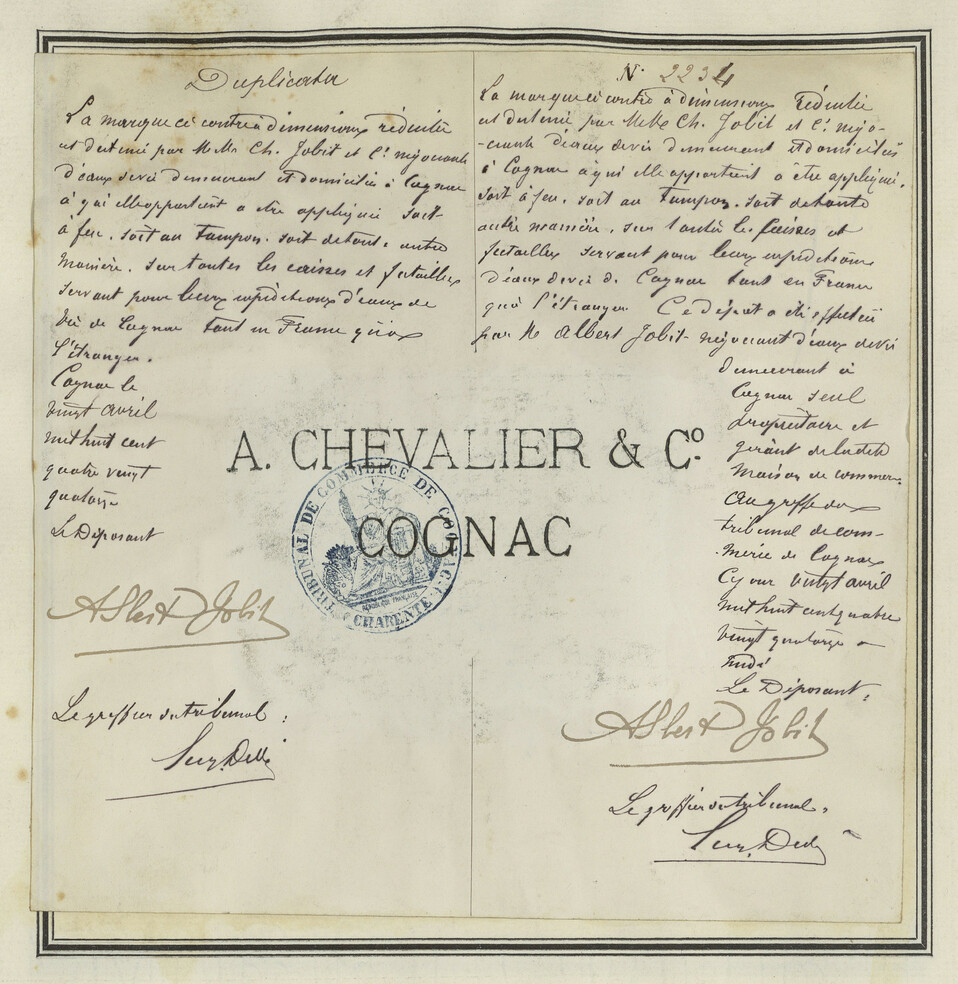 Duplicata
La marque ci contre à dimensions réduites
est détenue par M Mrs Ch. Jobit et Cie négociants
d'eaux de vie demeurant et domiciliés à Cognac
à qui elle appartient a être appliquée soit
à feu, soit au tampon, soit de toute autre
manière, sur toutes les caisses et futailles
servant pour leurs expéditions d'eaux de
vie de Cognac tant en France qu'à
l'étranger.
Cognac le
vingt avril
mil huit cent
quatre vingt
quatorze
Le Déposant
Albert Jobit
Le greffier du tribunal :
N° 2234
La marque ci contre à dimensions réduites
est détenue par M Mrs Ch. Jobit et Cie négo-
-ciants d'eaux de vie demeurant et domiciliés
à Cognac à qui elle appartient à être appliquée,
soit à feu, soit au tampon, soit de toute
autre manière, sur toutes les caisses et
futailles servant pour leurs expéditions
d'eaux de vie de Cognac tant en France
qu'à l'étranger. Ce dépôt a été effectué
par M Albert Jobit négociant d'eaux de vie
demeurant à
Cognac seul
propriétaire et
gérant de ladite
Maison de commerce
au greffe du
tribunal de com-
merce de Cognac
Ce jour vingt avril
mil huit cent quatre
vingt quatorze à
midi
Le Déposant :
Albert Jobit
Le greffier du tribunal,
A. CHEVALIER & Cº
COGNAC
TRIBUNAL DE COMMERCE DE COGNAC
CHARENTE
RÉPUBLIQUE FRANÇAISE